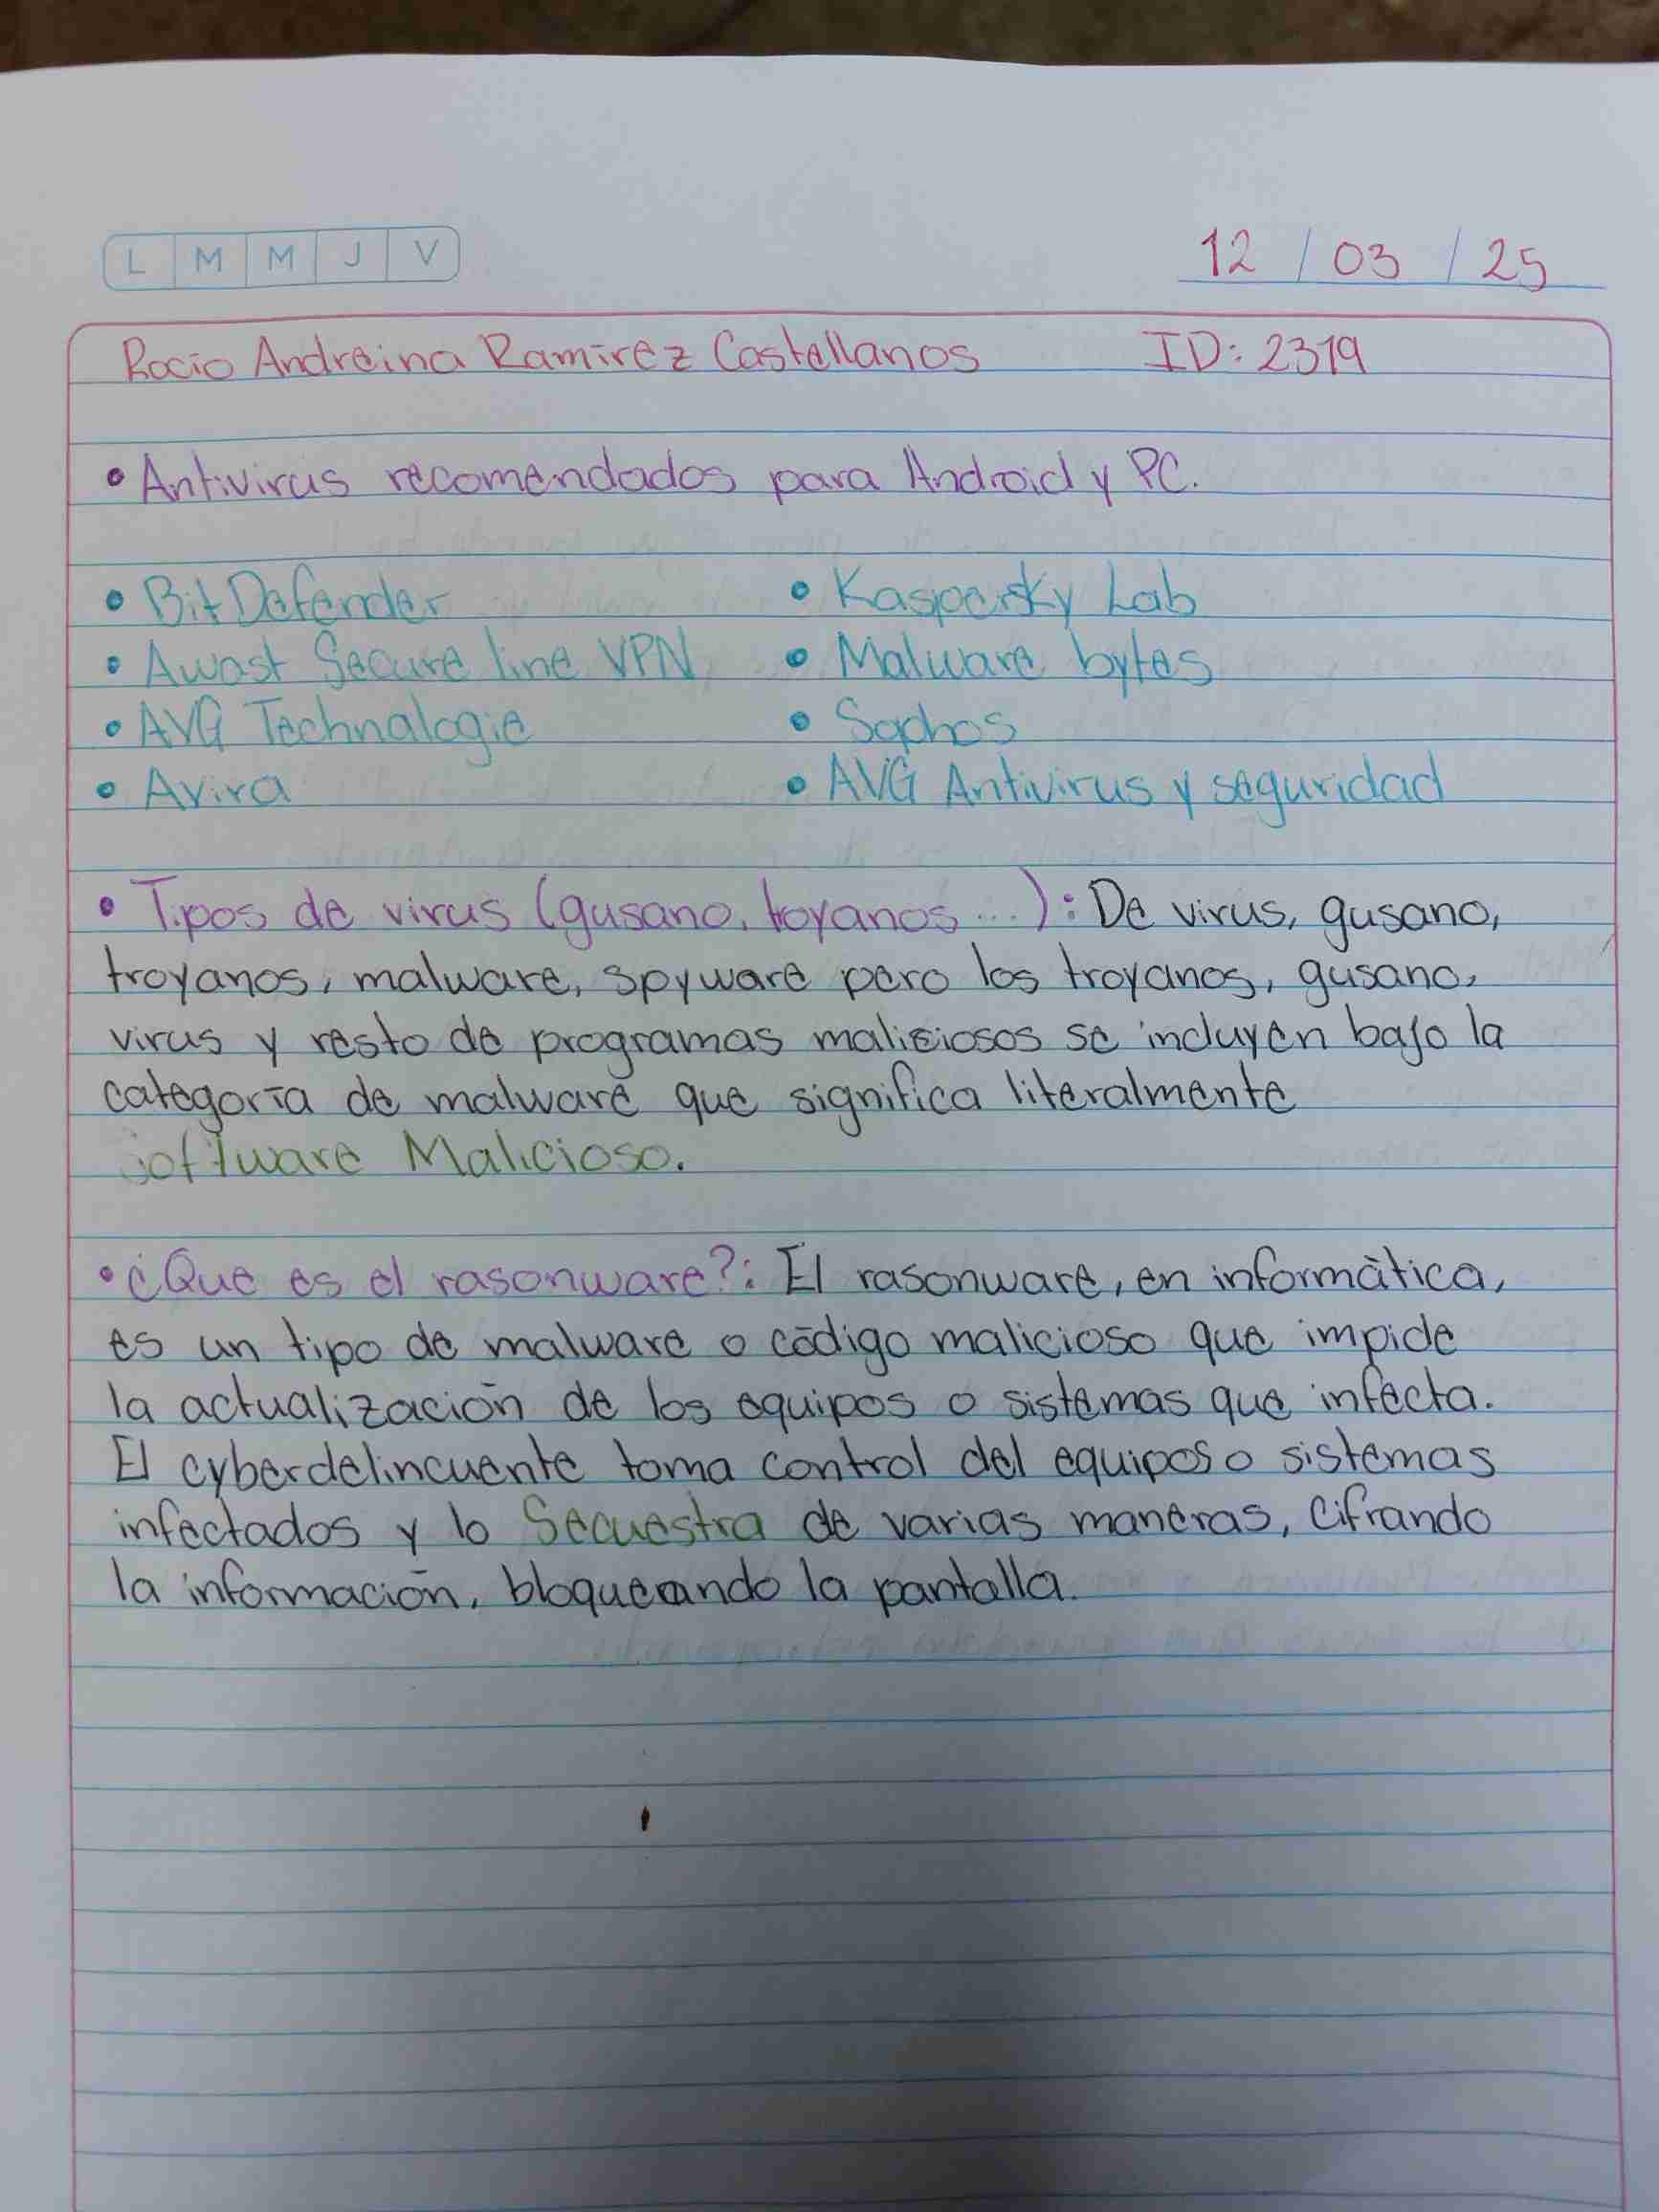 L M M J V
12 / 03 / 25
Rocio Andreina Ramirez Castellanos ID: 2319
• Antivirus recomendados para Android y PC.
• BitDefender • Kaspersky Lab
• Awast Secure line VPN • Malware bytes
• AVG Technalogie • Sophos
• Avira • AVG Antivirus y seguridad
• Tipos de virus (gusano, troyanos ...): De virus, gusano,
troyanos, malware, spyware pero los troyanos, gusano,
virus y resto de programas maliciosos se incluyen bajo la
categoría de malware que significa literalmente
Software Malicioso.
• ¿Que es el rasonware?: El rasonware, en informàtica,
es un tipo de malware o código malicioso que impide
la actualización de los equipos o sistemas que infecta.
El cyberdelincuente toma control del equipos o sistemas
infectados y lo Secuestra de varias maneras, Cifrando
la información, bloqueando la pantalla.